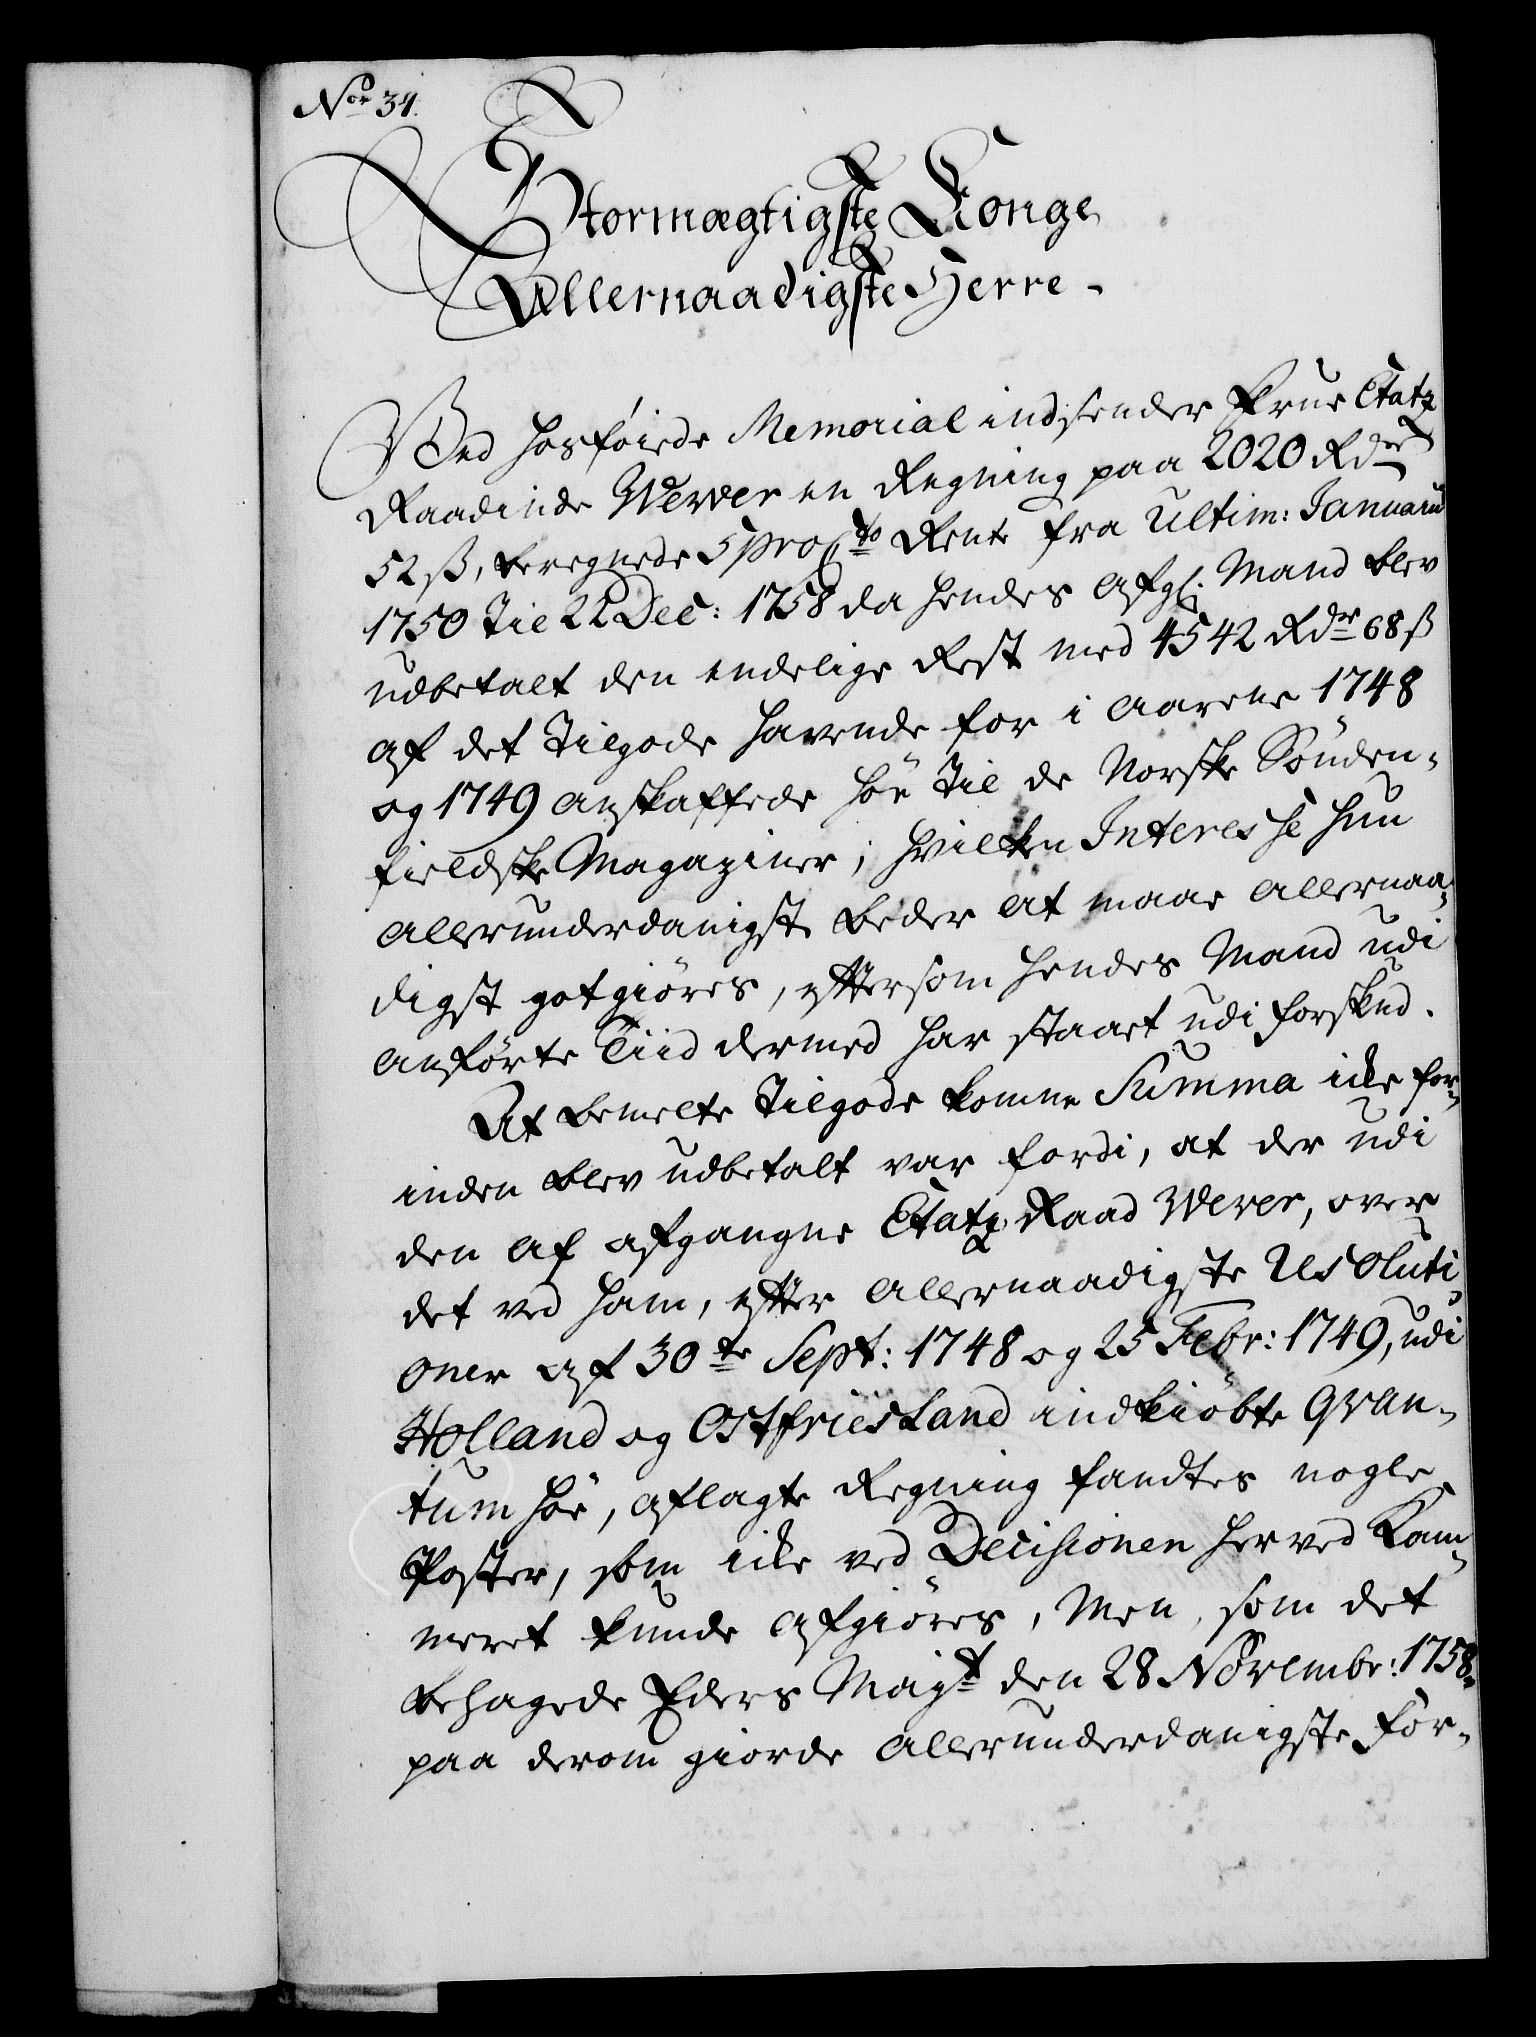 Nor 34.
Stormægtigste Konge
Allernaadigste Herre -
Ved hosføiede Memorial indsender Frue Etatz
Raadinde Werver en Regning paa 2020 Rdr
52 ß, beregnede 5 pro Cto Rente fra Ultim: Januarii
1750 til 22 Dec: 1758 da hendes afgl. Mand blev
udbetalt den endelige Rest med 4542 Rdr 68 ß
af det tilgode havende for i Aarene 1748
og 1749 anskaffede høe til de Norske Sönden-
fieldske Magaziner; hvilken Interesse hun
allerunderdanigst beder at maae allernaa-
digst gotgiöres, eftersom hendes Mand udi
anförte Tiid dermed har staaet udi forskud.
At bemelte tilgode komne Summa icke for-
inden blev udbetalt var fordi, at der udi
den af afgangne Etatz Raad Werer, over
det ved ham, efter allernaadigste Resoluti-
oner af 30te Sept: 1748 og 25 Febr: 1749, udi
Holland og Ostfriesland indkiöbte Qvan-
tum höe, aflagte Regning fandtes nogle
Poster, som icke ved Decisionen her ved Kam-
meret kunde afgiöres, Men, som det
behagede Eders Mayt den 28 Novembr: 1758
paa derom giorde allerunderdanigste For-